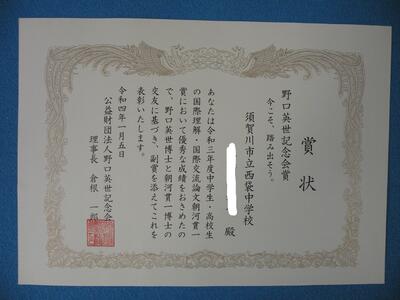 賞状
野口英世記念会賞
今こそ、踏み出そう。
須賀川市立西袋中学校
殿
あなたは令和三年度中学生・高校生
の国際理解・国際交流論文朝河貫一
賞において優秀な成績をおさめたの
で、野口英世博士と朝河貫一博士の
交友に基づき、副賞を添えてこれを
表彰いたします。
令和四年一月五日
公益財団法人野口英世記念会
理事長 倉根 一郎